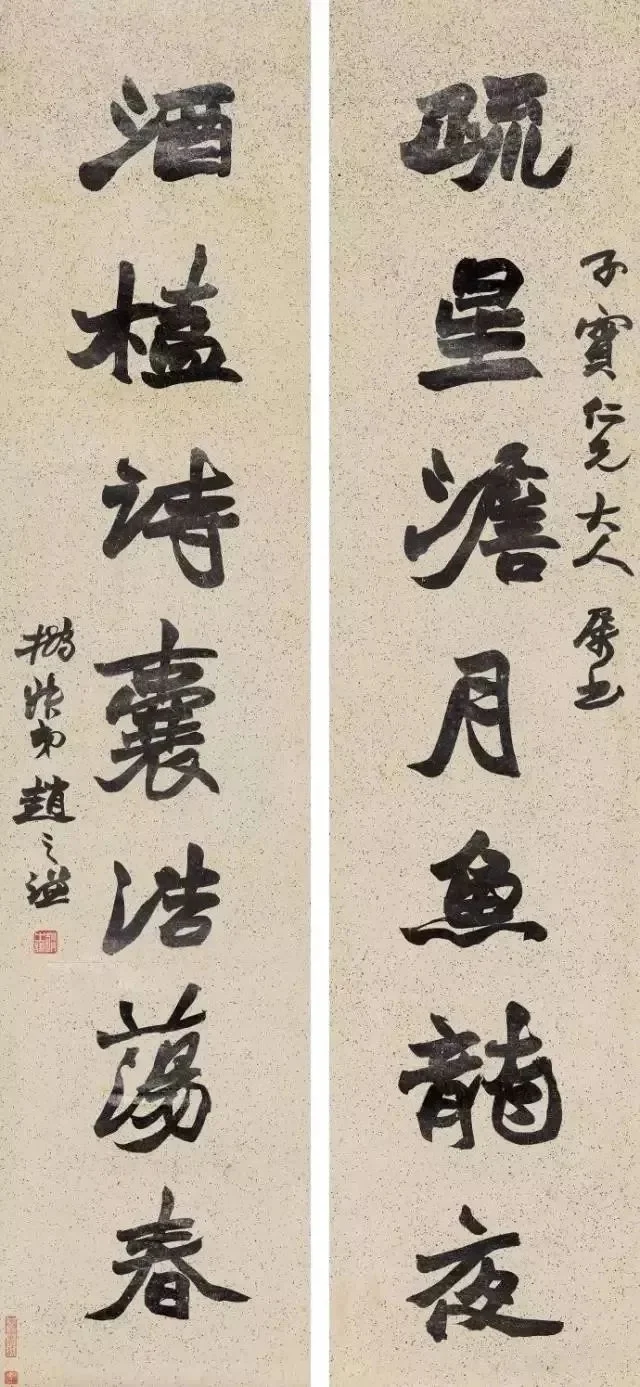 子實仁兄大人屬書
疏星澹月魚龍夜
酒榼詩囊浩蕩春
撝叔弟趙之謙